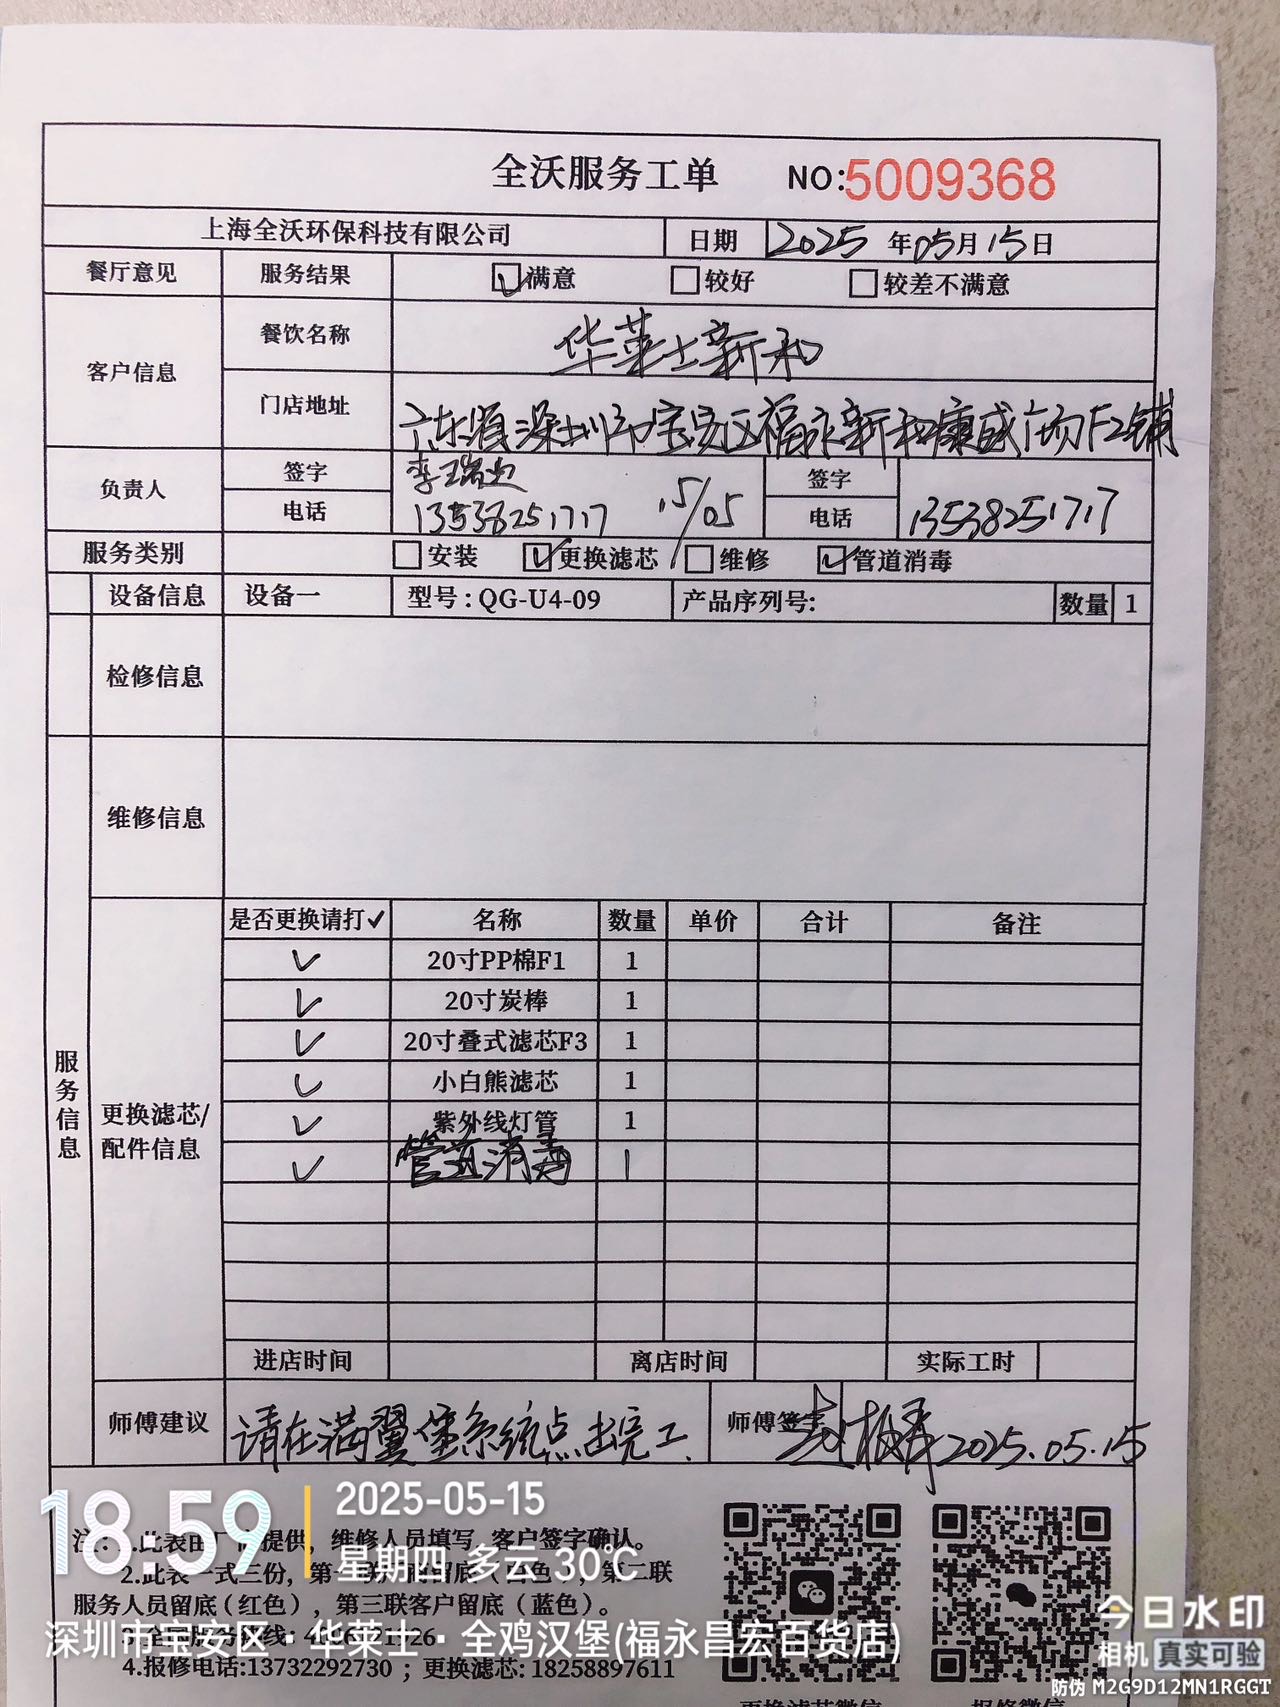 全沃服务工单 NO:5009368
上海全沃环保科技有限公司 日期 2025 年 05 月 15 日
餐厅意见 服务结果 满意 较好 较差不满意
客户信息 餐饮名称 华莱士新和
门店地址 广东省深圳市宝安区福永新和康盛广场F2铺
负责人 签字 李瑞 签字
电话 13538251717 15/05 电话 13538251717
服务类别 安装 更换滤芯 维修 管道消毒
设备信息 设备一 型号:QG-U4-09 产品序列号: 数量 1
检修信息
维修信息
服务信息
更换滤芯/
配件信息
是否更换请打✓ 名称 数量 单价 合计 备注
✓ 20寸PP棉F1 1
✓ 20寸炭棒 1
✓ 20寸叠式滤芯F3 1
✓ 小白熊滤芯 1
✓ 紫外线灯管 1
✓ 管道消毒 1
进店时间 离店时间 实际工时
师傅建议 请在满翼堡系统点击完工 师傅签字 2025.05.15
注:1.此表由厂 提供, 维修人员填写, 客户签字确认。
2.此表一式三份, 第一联 留底(白色), 第二联
服务人员留底(红色), 第三联客户留底(蓝色)。
4.报修电话:13732292730 ; 更换滤芯: 18258897611
更换滤芯微信 报修微信
18:59
2025-05-15
星期四 多云 30℃
深圳市宝安区·华莱士·全鸡汉堡(福永昌宏百货店)
今日水印
相机 真实可验
防伪 M2G9D12MN1RGGT